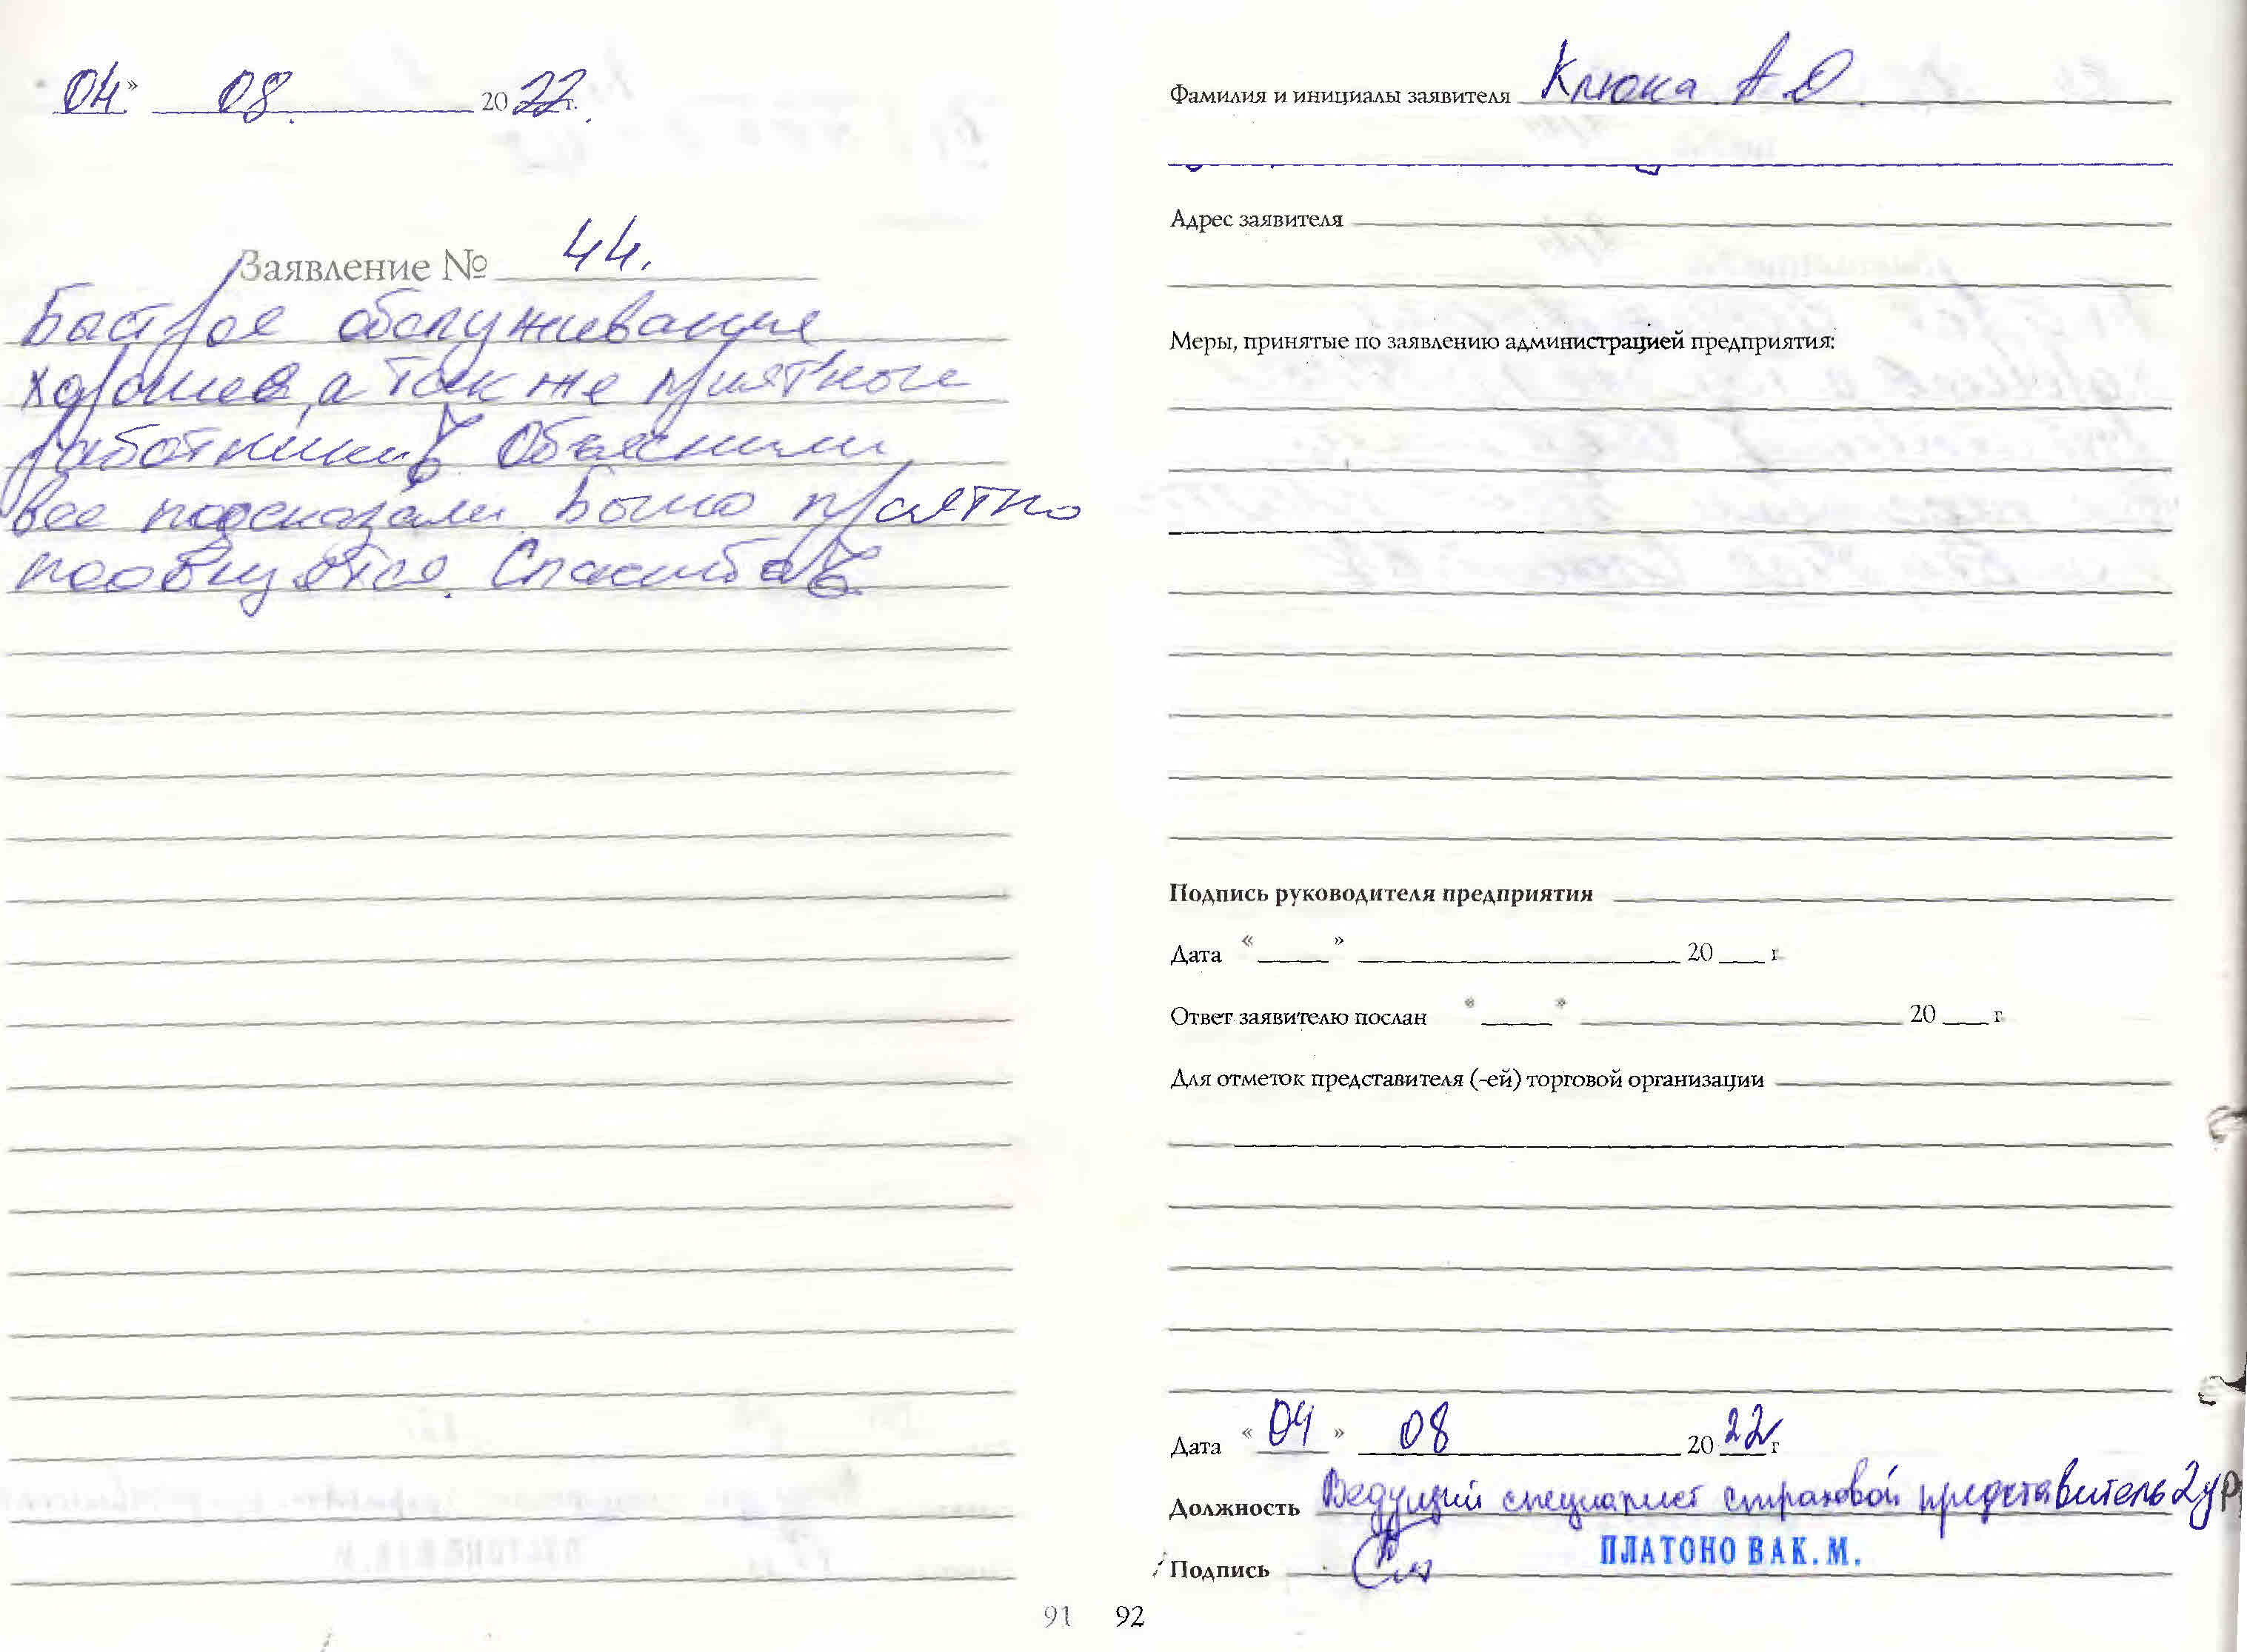 04." 08. 2022г.
Заявление № 44.
Быстрое обслуживание
хорошее, а так же приятные
работники! Объяснили
все подсказали. Было приятно
Спасибо!
91
Фамилия и инициалы заявителя Клюка А О.
Адрес заявителя
Меры, принятые по заявлению администрацией предприятия:
Подпись руководителя предприятия
Дата « » 20 г.
Ответ заявителю послан « » 20 г.
Для отметок представителя (-ей) торговой организации
Дата « 04 » 08 2022 г
Должность Ведущий специалист страховой представитель 2 ур
Подпись
ПЛАТОНОВА К. М.
92